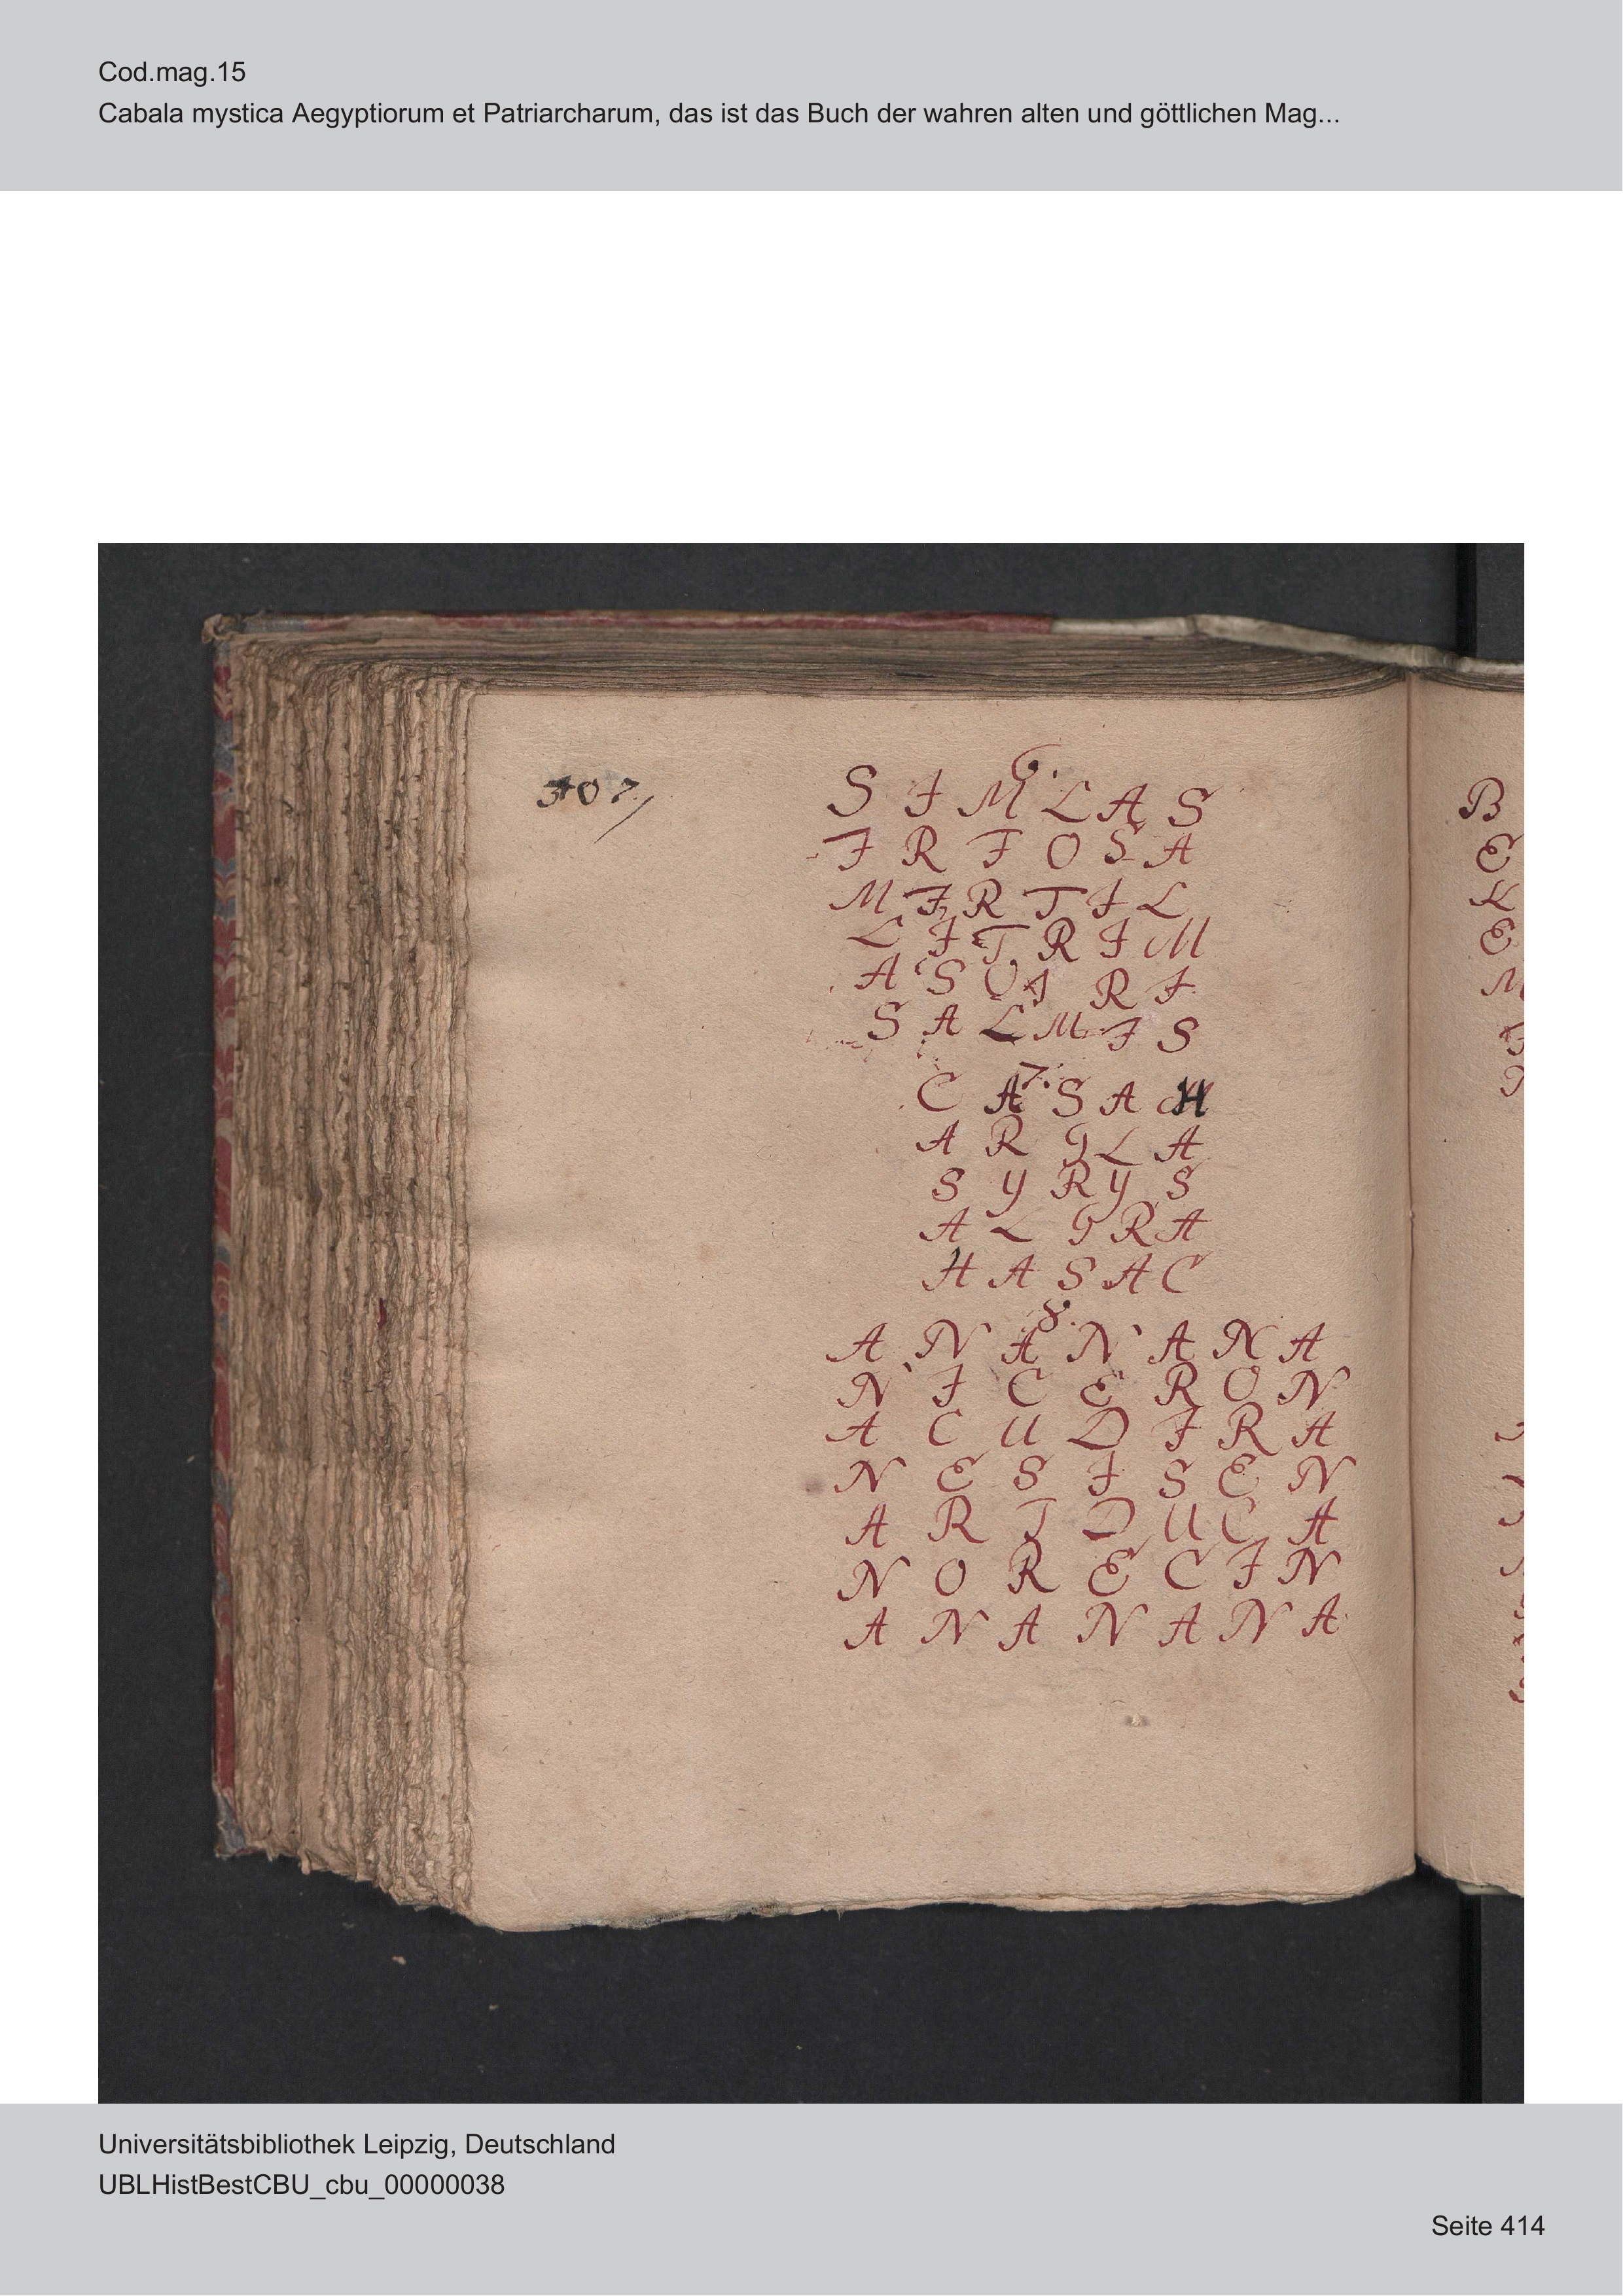 Cod.mag.15
Cabala mystica Aegyptiorum et Patriarcharum, das ist das Buch der wahren alten und göttlichen Mag...
307
6.
S I M L A S
I R I O S A
M I R T I L
L I T R I M
A S O I R I
S A L M I S
7.
C A S A H
A R I L A
S Y R Y S
A L I R A
H A S A C
8.
A N A N A N A
N I C E R O N
A C U D I R A
N E S I S E N
A R I D U C A
N O R E C I N
A N A N A N A
B
E
K
E
M
Universitätsbibliothek Leipzig, Deutschland
UBLHistBestCBU_cbu_00000038
Seite 414